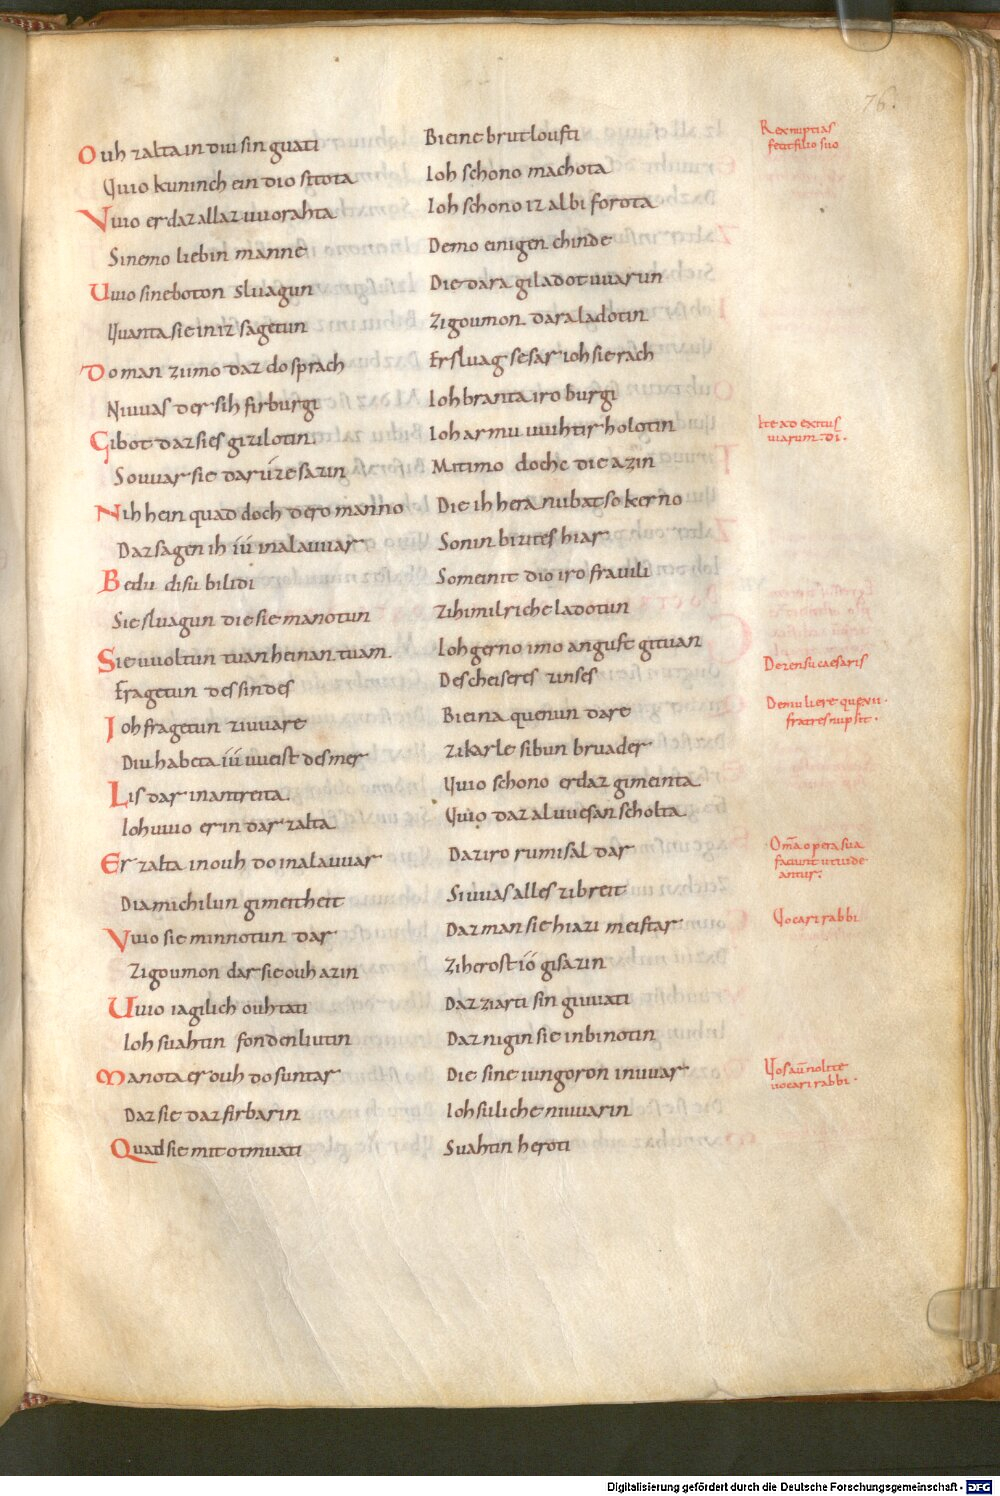 76.
Ouh zalta in duu sin guati Bi eine brutloufti
Vuio kuninch ein dio sitota Ioh schono machota
Vuio er daz allaz uuorahta Ioh schono iz albi forota
Sinemo liebin manne Demo einigen chinde
Uuio sine boton sluagun Die dara giladot uuarun
Uuanta sie in iz sagetun Zi goumon dara ladotin
Do man zi imo daz do sprach Er sluag se sar ioh sie rach
Ni uuas der sih firburgi Ioh branta iro burgi
Gibot daz sie gizilotin. Ioh armu uuihtir holotin
So uuar sie dar uzе sazin Mit imo doche die azin
Nih hein quad doch dero manno Die ih hera nu bat so kerno
Daz sagen ih iu in alauuar So ni inbizites hiar
Bedu disu bilidi So meinit dio iro frauili
Sie sluagun die sie manotun Zi himilriche ladotun
Sie uuoltun tuan heinan tuam. Ioh gerno imo anguste gituan
Fragetun des sindes Des cheiseres zinses
Ioh fragetun ziuuare Bi eina quenun dare
Diu habeta iu uueist des mer Zi karle sibun bruader
Lis dar in antreita. Vuio schono er daz gimeinta
Ioh uuio er in dar zalta Vuio daz al uuesan scholta
Er zalta in ouh do in alauuar Daz iro rumisal dar
Dia michilun gimeitheit Si uuas alles zi breit
Vuio sie minnotun dar Daz man sie hiazi meistar
Zi goumon dar sie ouh azin Zi herost io gisazin
Uuio iagilich ouh tati Daz ziarti sin giuuati
Ioh suahtin fon den liutin Daz nigin sie in bi notin
Manota er ouh do suntar Die sine iungoron in uuar
Daz sie daz firbarin Ioh suliche ni uuarin
Quad sie mit otmuati Suahtin heroti
Rex nuptias
fecit filio suo
Ite ad exitus
uiarum. &
De censu caesaris
De muliere que uii.
fratres nupsit.
Om̄a opera sua
faciunt ut uide
antur.
Vocari rabbi
Vos aū nolite
uocari rabbi.
Digitalisierung gefördert durch die Deutsche Forschungsgemeinschaft - DFG